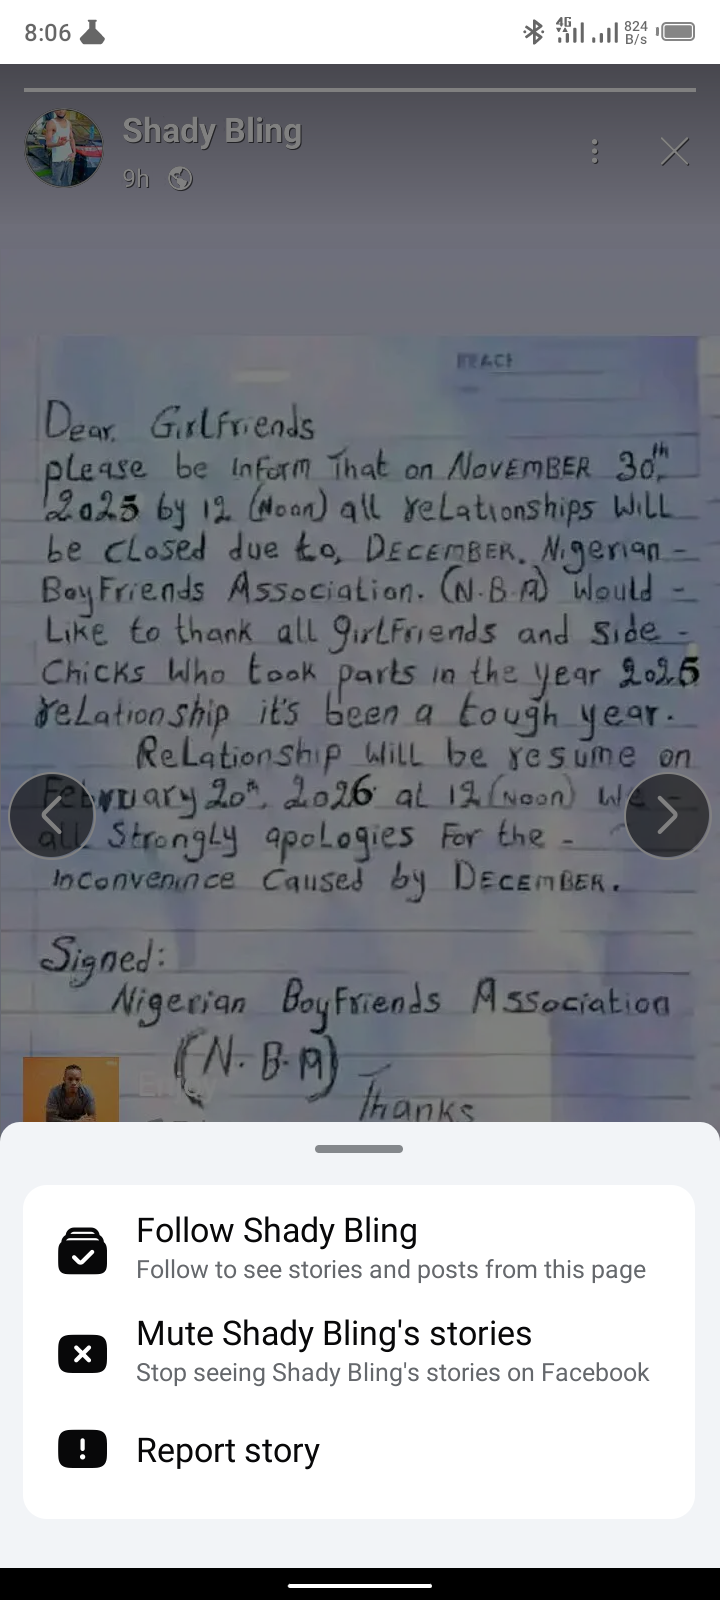 8:06
4G
824
B/s
Shady Bling
9h
Dear. Girlfriends
please be inform That on NOVEMBER 30th
2025 by 12 (Noon) all relationships Will
be closed due to, DECEMBER. Nigerian -
BoyFriends Association. (N.B.A) Would -
Like to thank all girlFriends and side -
Chicks Who took parts in the year 2025
relationship it's been a tough year.
Relationship Will be resume on
February 20th, 2026 at 12 (Noon) We -
all Strongly apologies For the -
Inconvenince Caused by DECEMBER.
Signed:
Nigerian BoyFriends Association
(N.B.A)
Thanks
Follow Shady Bling
Follow to see stories and posts from this page
Mute Shady Bling's stories
Stop seeing Shady Bling's stories on Facebook
Report story